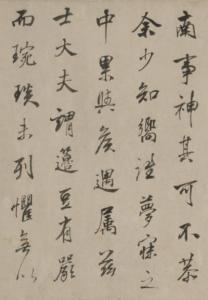 南事神其可不恭
余少知嚮往夢寐之
中果與矦遇属茲
士大夫謂籩豆有嚴
而琬琰未列懼無以